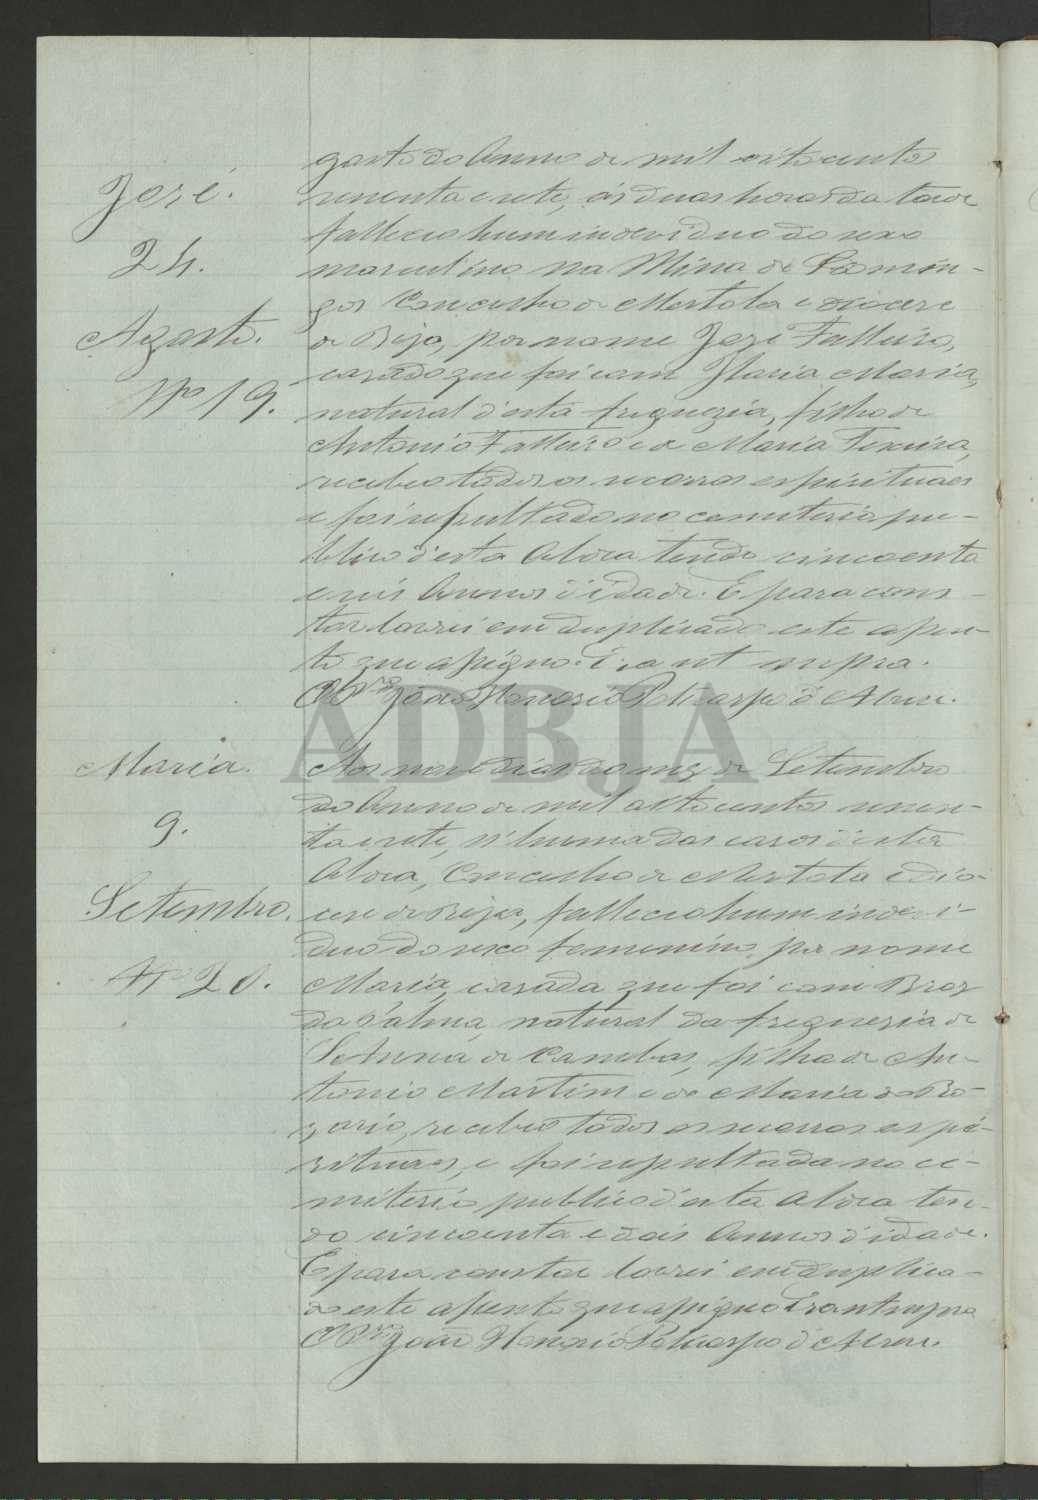 José.
24.
Agosto.
Nº 19.
gosto do Anno de mil oito centos
noventa e sete, ás duas horas da tarde
falleceo hum individuo do sexo
masculino na Mina de S. Domin-
gos Concelho de Mertola e diocese
de Beja, por nome José Falleiro,
casado que foi com Maria Maria,
natural d'esta freguezia, filho de
Antonio Falleiro e de Maria Teixeira,
recebeo todos os socorros espirituaes
e foi sepultado no cemiterio pu-
blico d'esta Aldea tendo cincoenta
e seis Annos d'idade. E para cons-
tar lavrei em duplicado este assen-
to que assigno. Era ut supra.
O Pr. João Honorio Policarpo d'Abreu.
Maria.
9.
Setembro.
Nº 20.
Aos nove dias do mez de Setembro
do Anno de mil oito centos noven-
ta e sete, n'huma das casas d'esta
Aldea, Concelho de Mertola e dio-
cese de Beja, falleceo hum indevi-
duo do sexo femenino, por nome
Maria, casada que foi com Braz
da Palma, natural da freguezia de
S. Anna de Cambas, filha de An-
tonio Martins e de Maria do Ro-
zario, recebeo todos os socorros espi-
rituaes, e foi sepultada no ce-
miterio publico d'esta Aldea ten-
do cincoenta e dois Annos d'idade.
E para constar lavrei em duplica-
do este assento que assigno Era ut supra
O Pr. João Honorio Policarpo d'Abreu.
ADBJA